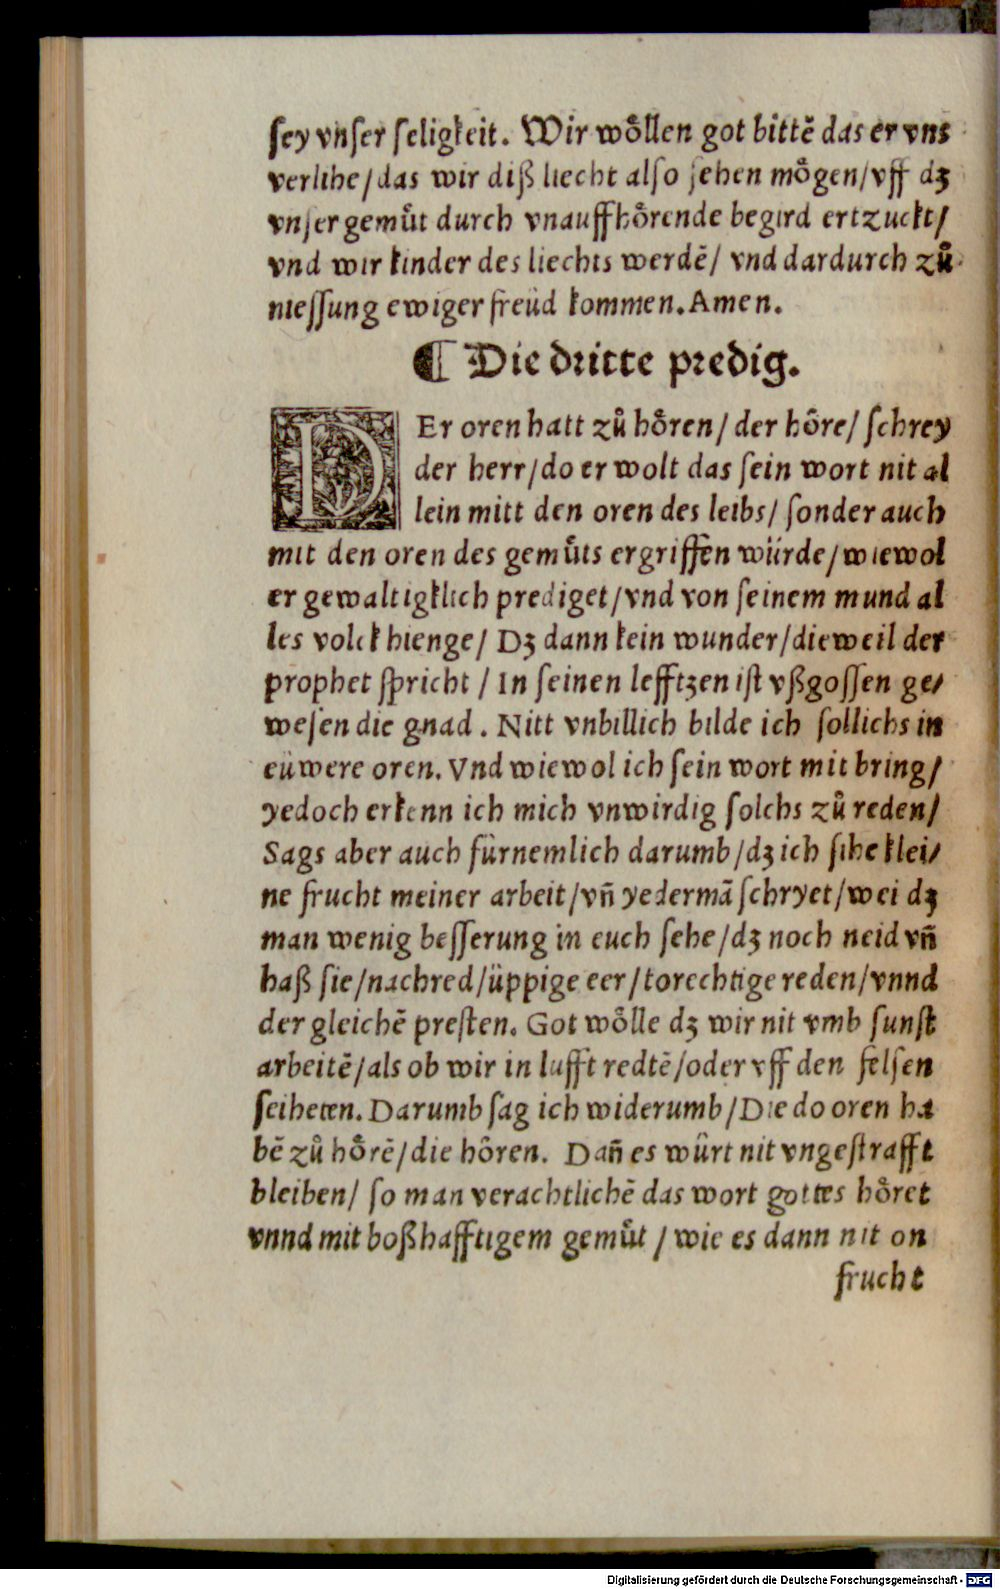 ſey vnſer ſeligkeit. Wir wöllen got bittē das er vns
verlihe/das wir diß liecht alſo ſehen mögen/vff dʒ
vnſer gemuͤt durch vnauffhörende begird ertzuckt/
vnd wir kinder des liechts werdē/ vnd dardurch zuͦ
nieſſung ewiger freüd kommen. Amen.
¶ Die dritte predig.
DEr oren hatt zuͦ hören/ der höre/ ſchrey
der herr/do er wolt das ſein wort nit al
lein mitt den oren des leibs/ ſonder auch
mit den oren des gemuͤts ergriffen würde/wiewol
er gewaltigklich prediget/vnd von ſeinem mund al
les volck hienge/ Dʒ dann kein wunder/dieweil der
prophet ſpricht / In ſeinen lefftzen iſt vßgoſſen ge/
weſen die gnad. Nitt vnbillich bilde ich ſollichs in
eüwere oren. Vnd wiewol ich ſein wort mit bring/
yedoch erkenn ich mich vnwirdig ſolchs zuͦ reden/
Sags aber auch fürnemlich darumb/dʒ ich ſihe klei/
ne frucht meiner arbeit/vñ yedermā ſchryet/wei dʒ
man wenig beſſerung in euch ſehe/dʒ noch neid vñ
haß ſie/nachred/üppige eer/torechtige reden/vnnd
der gleichē preſten. Got wölle dʒ wir nit vmb ſunſt
arbeitē/als ob wir in lufft redtē/oder vff den felſen
ſeiheten. Darumb ſag ich widerumb/Die do oren ha
bē zuͦ hörē/die hören. Dañ es würt nit vngeſtrafft
bleiben/ ſo man verachtlichē das wort gottes höret
vnnd mit boßhafftigem gemuͤt / wie es dann nit on
frucht
Digitalisierung gefördert durch die Deutsche Forschungsgemeinschaft - DFG